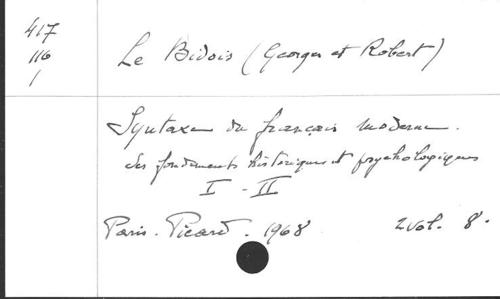 417
116
1
Le Bidois (Georges et Robert)
Syntaxe du français moderne.
Ses fondements historiques et psychologiques
I - II
Paris. Picard. 1968 2 vol. 8°.